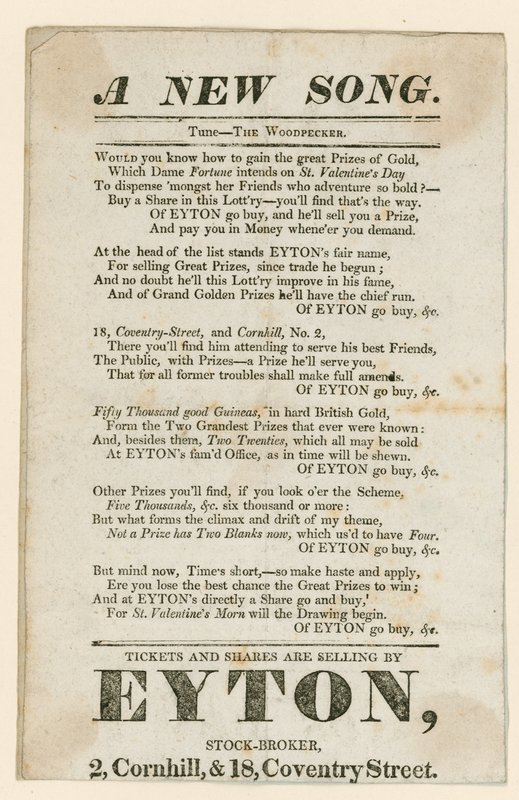 A NEW SONG.
Tune—THE WOODPECKER.
WOULD you know how to gain the great Prizes of Gold,
Which Dame Fortune intends on St. Valentine's Day
To dispense 'mongst her Friends who adventure so bold?—
Buy a Share in this Lott'ry—you'll find that's the way.
Of EYTON go buy, and he'll sell you a Prize,
And pay you in Money whene'er you demand.
At the head of the list stands EYTON's fair name,
For selling Great Prizes, since trade he begun;
And no doubt he'll this Lott'ry improve in his fame,
And of Grand Golden Prizes he'll have the chief run.
Of EYTON go buy, &c.
18, Coventry-Street, and Cornhill, No. 2,
There you'll find him attending to serve his best Friends,
The Public, with Prizes—a Prize he'll serve you,
That for all former troubles shall make full amends.
Of EYTON go buy, &c.
Fifty Thousand good Guineas, in hard British Gold,
Form the Two Grandest Prizes that ever were known:
And, besides them, Two Twenties, which all may be sold
At EYTON's fam'd Office, as in time will be shewn.
Of EYTON go buy, &c.
Other Prizes you'll find, if you look o'er the Scheme,
Five Thousands, &c. six thousand or more:
But what forms the climax and drift of my theme,
Not a Prize has Two Blanks now, which us'd to have Four.
Of EYTON go buy, &c.
But mind now, Time's short,—so make haste and apply,
Ere you lose the best chance the Great Prizes to win;
And at EYTON's directly a Share go and buy,'
For St. Valentine's Morn will the Drawing begin.
Of EYTON go buy, &c.
TICKETS AND SHARES ARE SELLING BY
EYTON,
STOCK-BROKER,
2, Cornhill, & 18, Coventry Street.